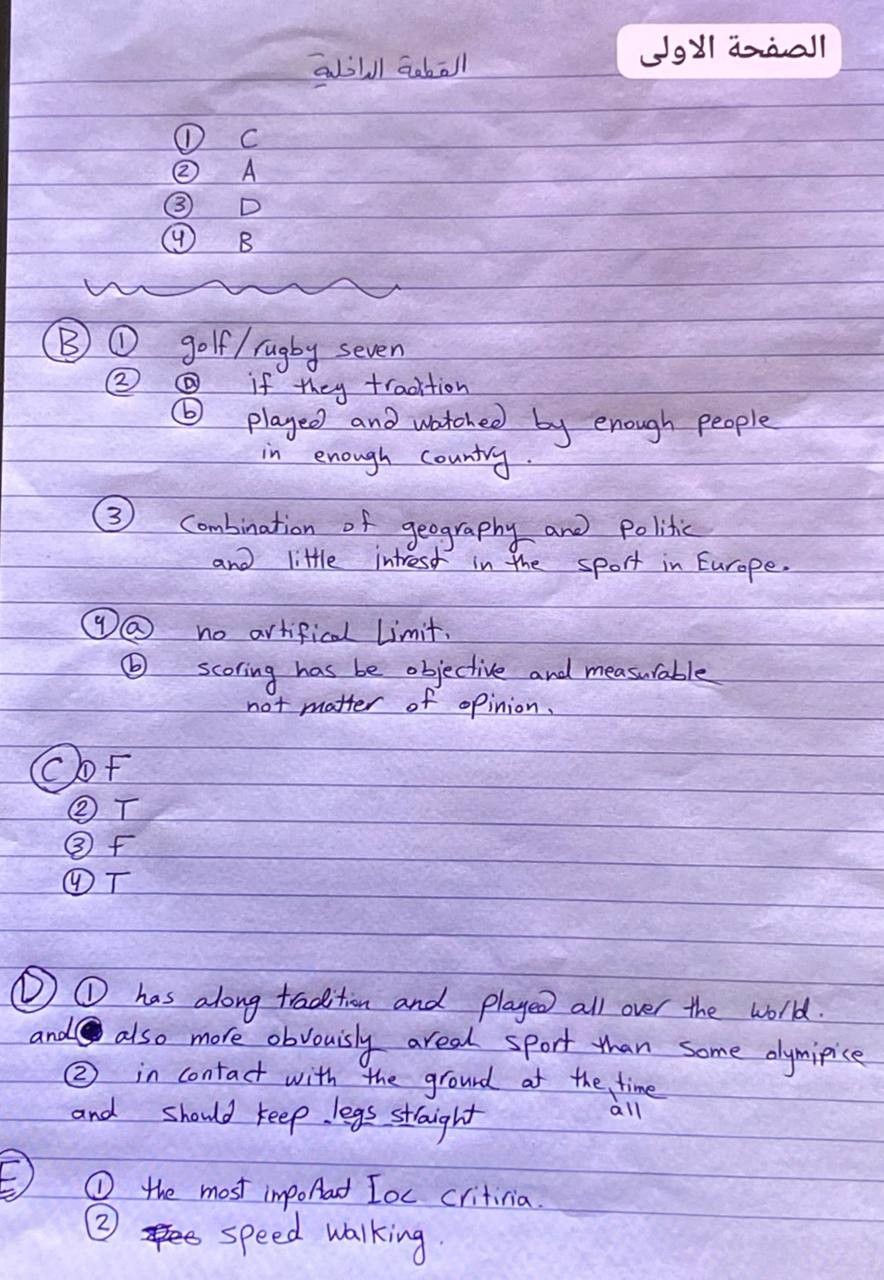 الصفحة الاولى
القطعة الداخلية
① C
② A
③ D
④ B
Ⓑ ① golf/rugby seven
② ⓐ if they tradition
ⓑ played and watched by enough people
in enough country.
③ Combination of geography and Politic
and little intrest in the sport in Europe.
④ ⓐ no artifical Limit.
ⓑ scoring has be objective and measurable
not matter of opinion.
Ⓒ ① F
② T
③ F
④ T
Ⓓ ① has along tradition and played all over the world.
and also more obvouisly areal sport than some olymipice
② in contact with the ground at the time
all
and should keep legs straight
Ⓔ ① the most important Ioc critiria.
② speed walking.